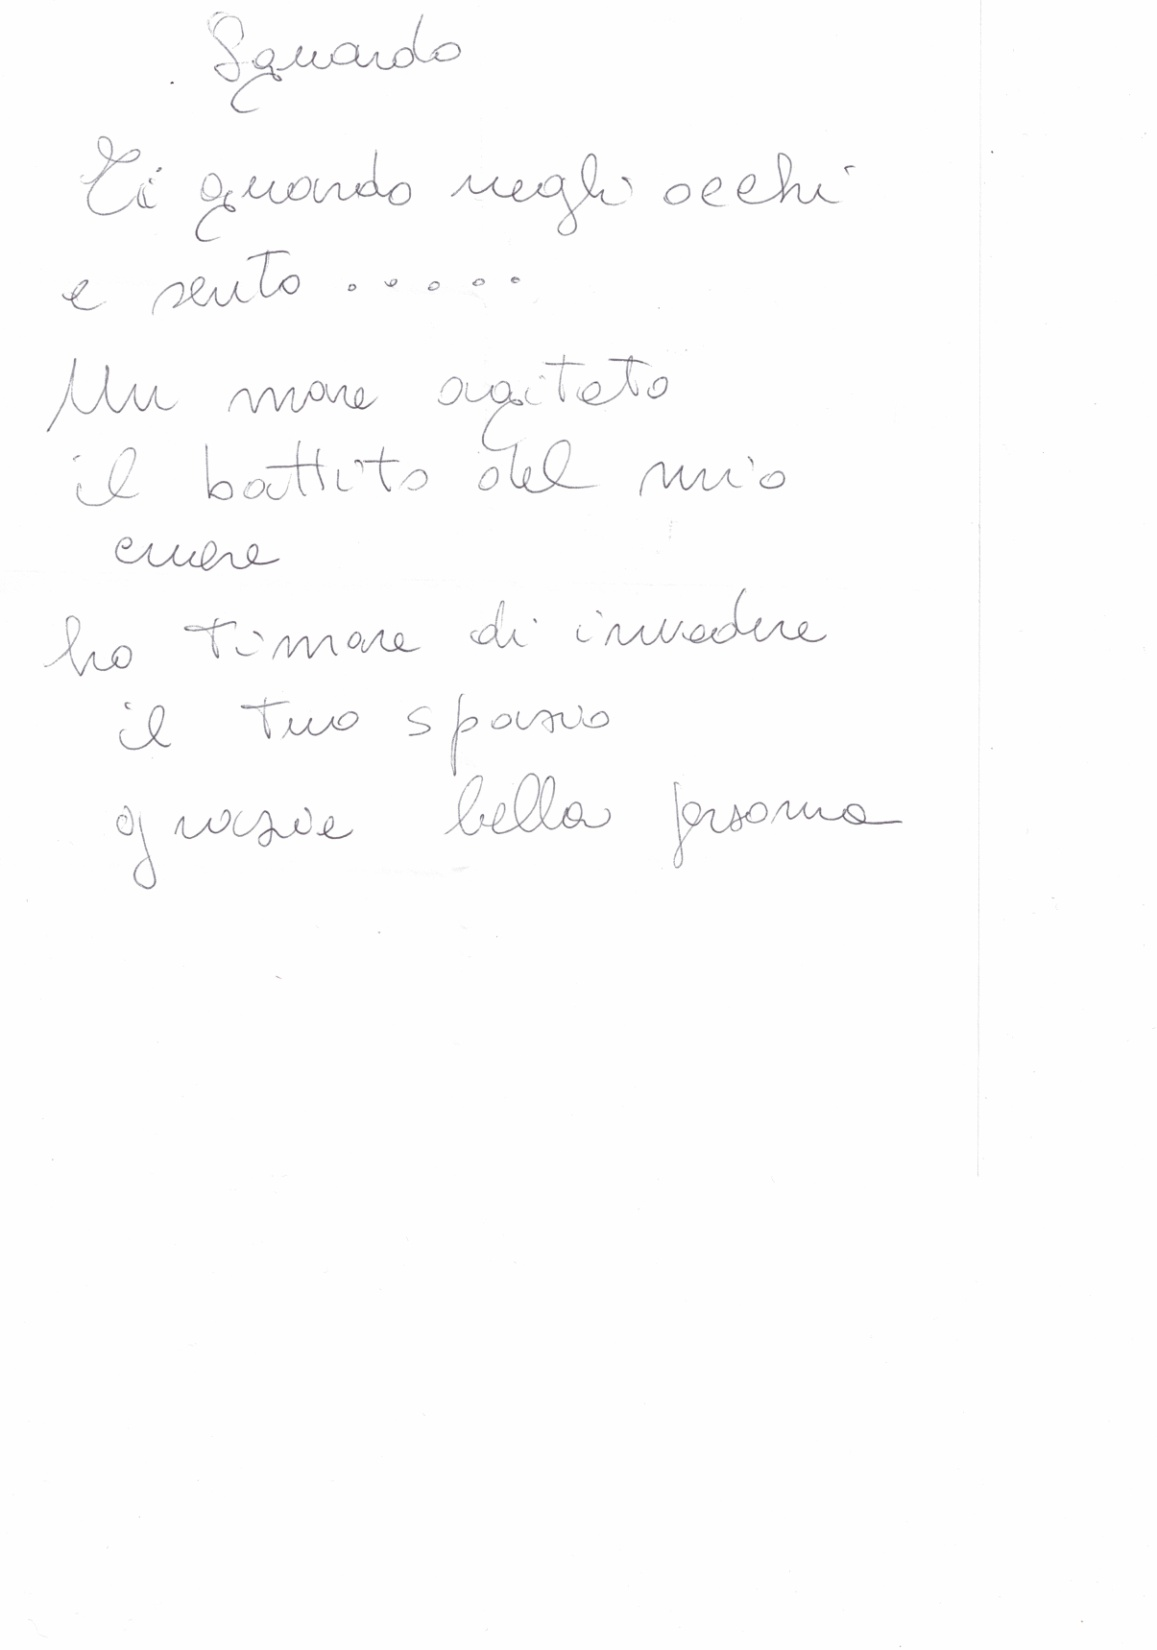 Sguardo
Ti guardo negli occhi
e sento .....
Un mare agitato
il battito del mio
cuore
ho timore di invadere
il tuo spazio
grazie bella persona